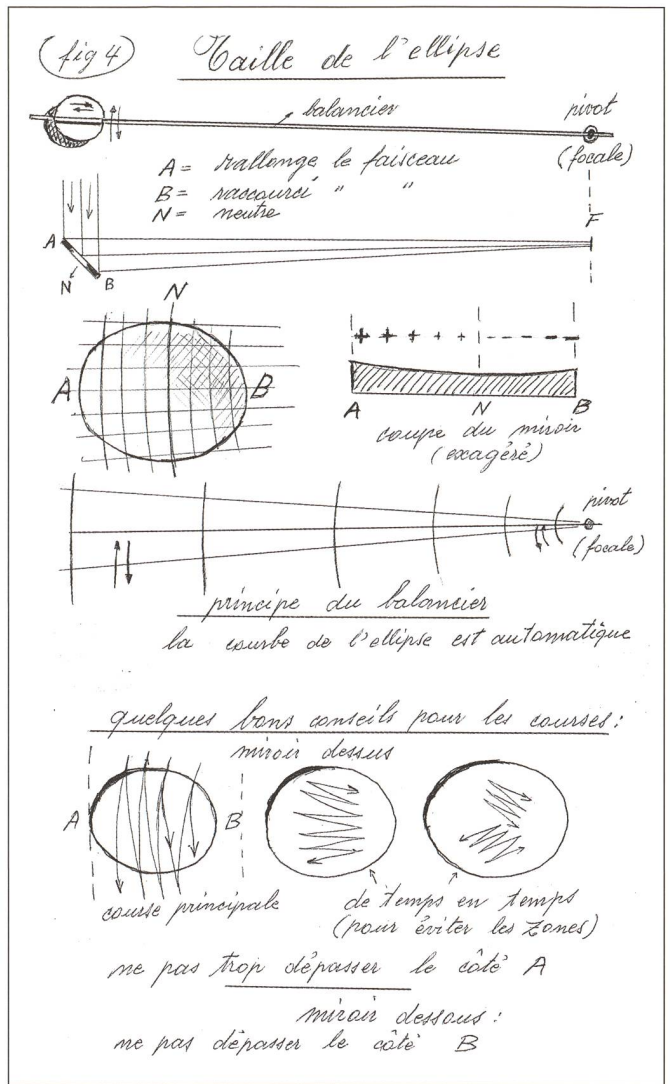 fig 4
Taille de l'ellipse
balancier
pivot
(focale)
A = rallonge le faisceau
B = raccourci " "
N = neutre
F
A
N
B
N
A
B
+ + + + + - - - - - -
A N B
coupe du miroir
(exagéré)
pivot
(focale)
principe du balancier
la courbe de l'ellipse est automatique
quelques bons conseils pour les courses :
miroir dessus
A
B
course principale
de temps en temps
(pour éviter les zones)
ne pas trop dépasser le côté A
miroir dessous :
ne pas dépasser le côté B